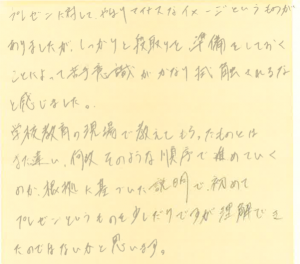 プレゼンに対して、やはりマイナスなイメージというものが
ありましたが、しっかりと段取りを準備をしておく
ことによって苦手意識がかなり払拭されるな
と感じました。
学校教育の現場で教えてもらったものとは
違い、何故そのような順序で進めていく
のか、根拠に基づいた説明で、初めて
プレゼンというものを少しだけですが理解でき
たのではないかと思います。